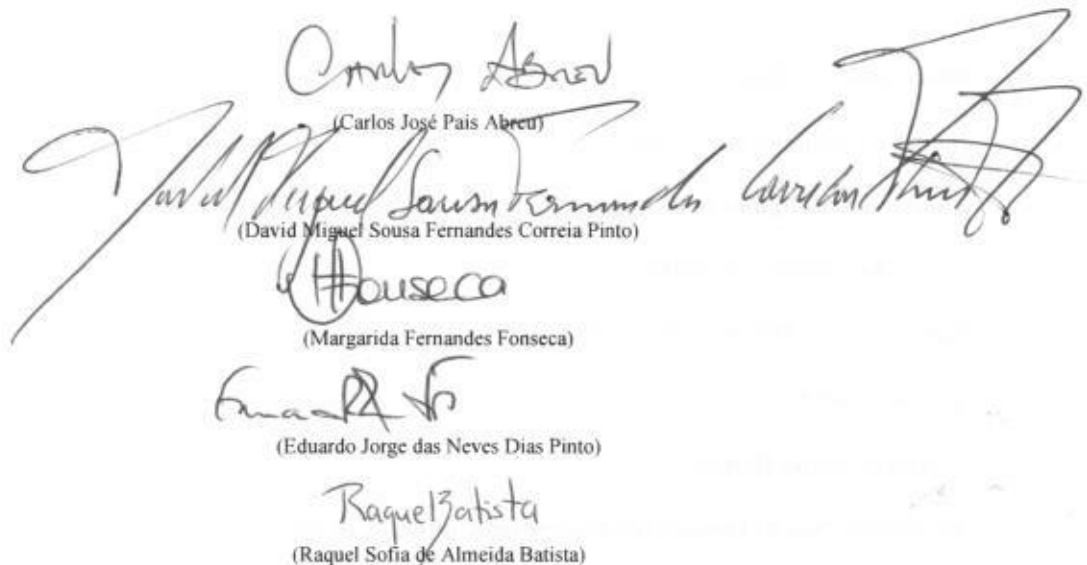 Carlos Abreu
(Carlos José Pais Abreu)
David Miguel Sousa Fernandes Correia Pinto
(David Miguel Sousa Fernandes Correia Pinto)
Fonseca
(Margarida Fernandes Fonseca)
(Eduardo Jorge das Neves Dias Pinto)
Raquel Batista
(Raquel Sofia de Almeida Batista)